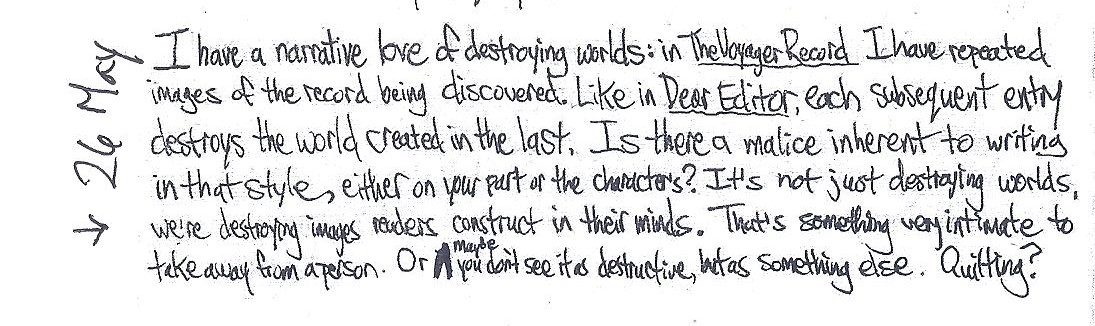 → 26 May
I have a narrative love of destroying worlds: in The Voyager Record I have repeated
images of the record being discovered. Like in Dear Editor, each subsequent entry
destroys the world created in the last. Is there a malice inherent to writing
in that style, either on your part or the characters? It's not just destroying worlds,
we're destroying images readers construct in their minds. That's something very intimate to
take away from a person. Or maybe you don't see it as destructive, but as something else. Quilting?